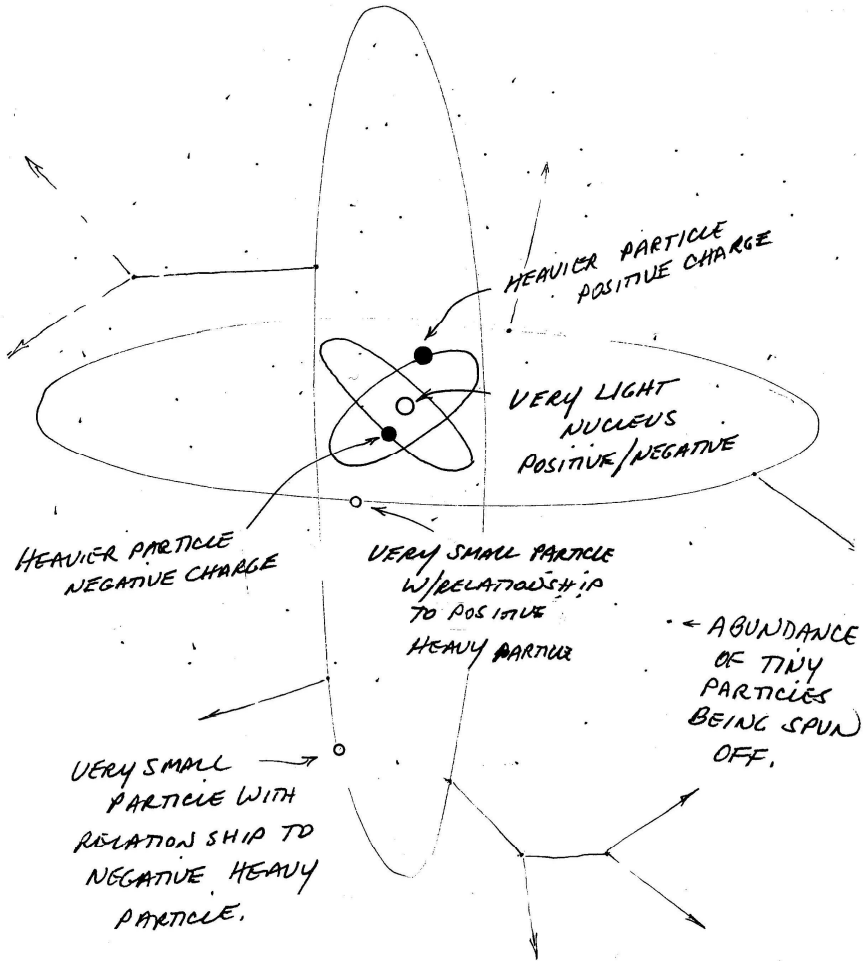 HEAVIER PARTICLE
POSITIVE CHARGE
VERY LIGHT
NUCLEUS
POSITIVE/NEGATIVE
HEAVIER PARTICLE
NEGATIVE CHARGE
VERY SMALL PARTICLE
W/RELATIONSHIP
TO POSITIVE
HEAVY PARTICLE
ABUNDANCE
OF TINY
PARTICLES
BEING SPUN
OFF.
VERY SMALL
PARTICLE WITH
RELATIONSHIP TO
NEGATIVE HEAVY
PARTICLE.